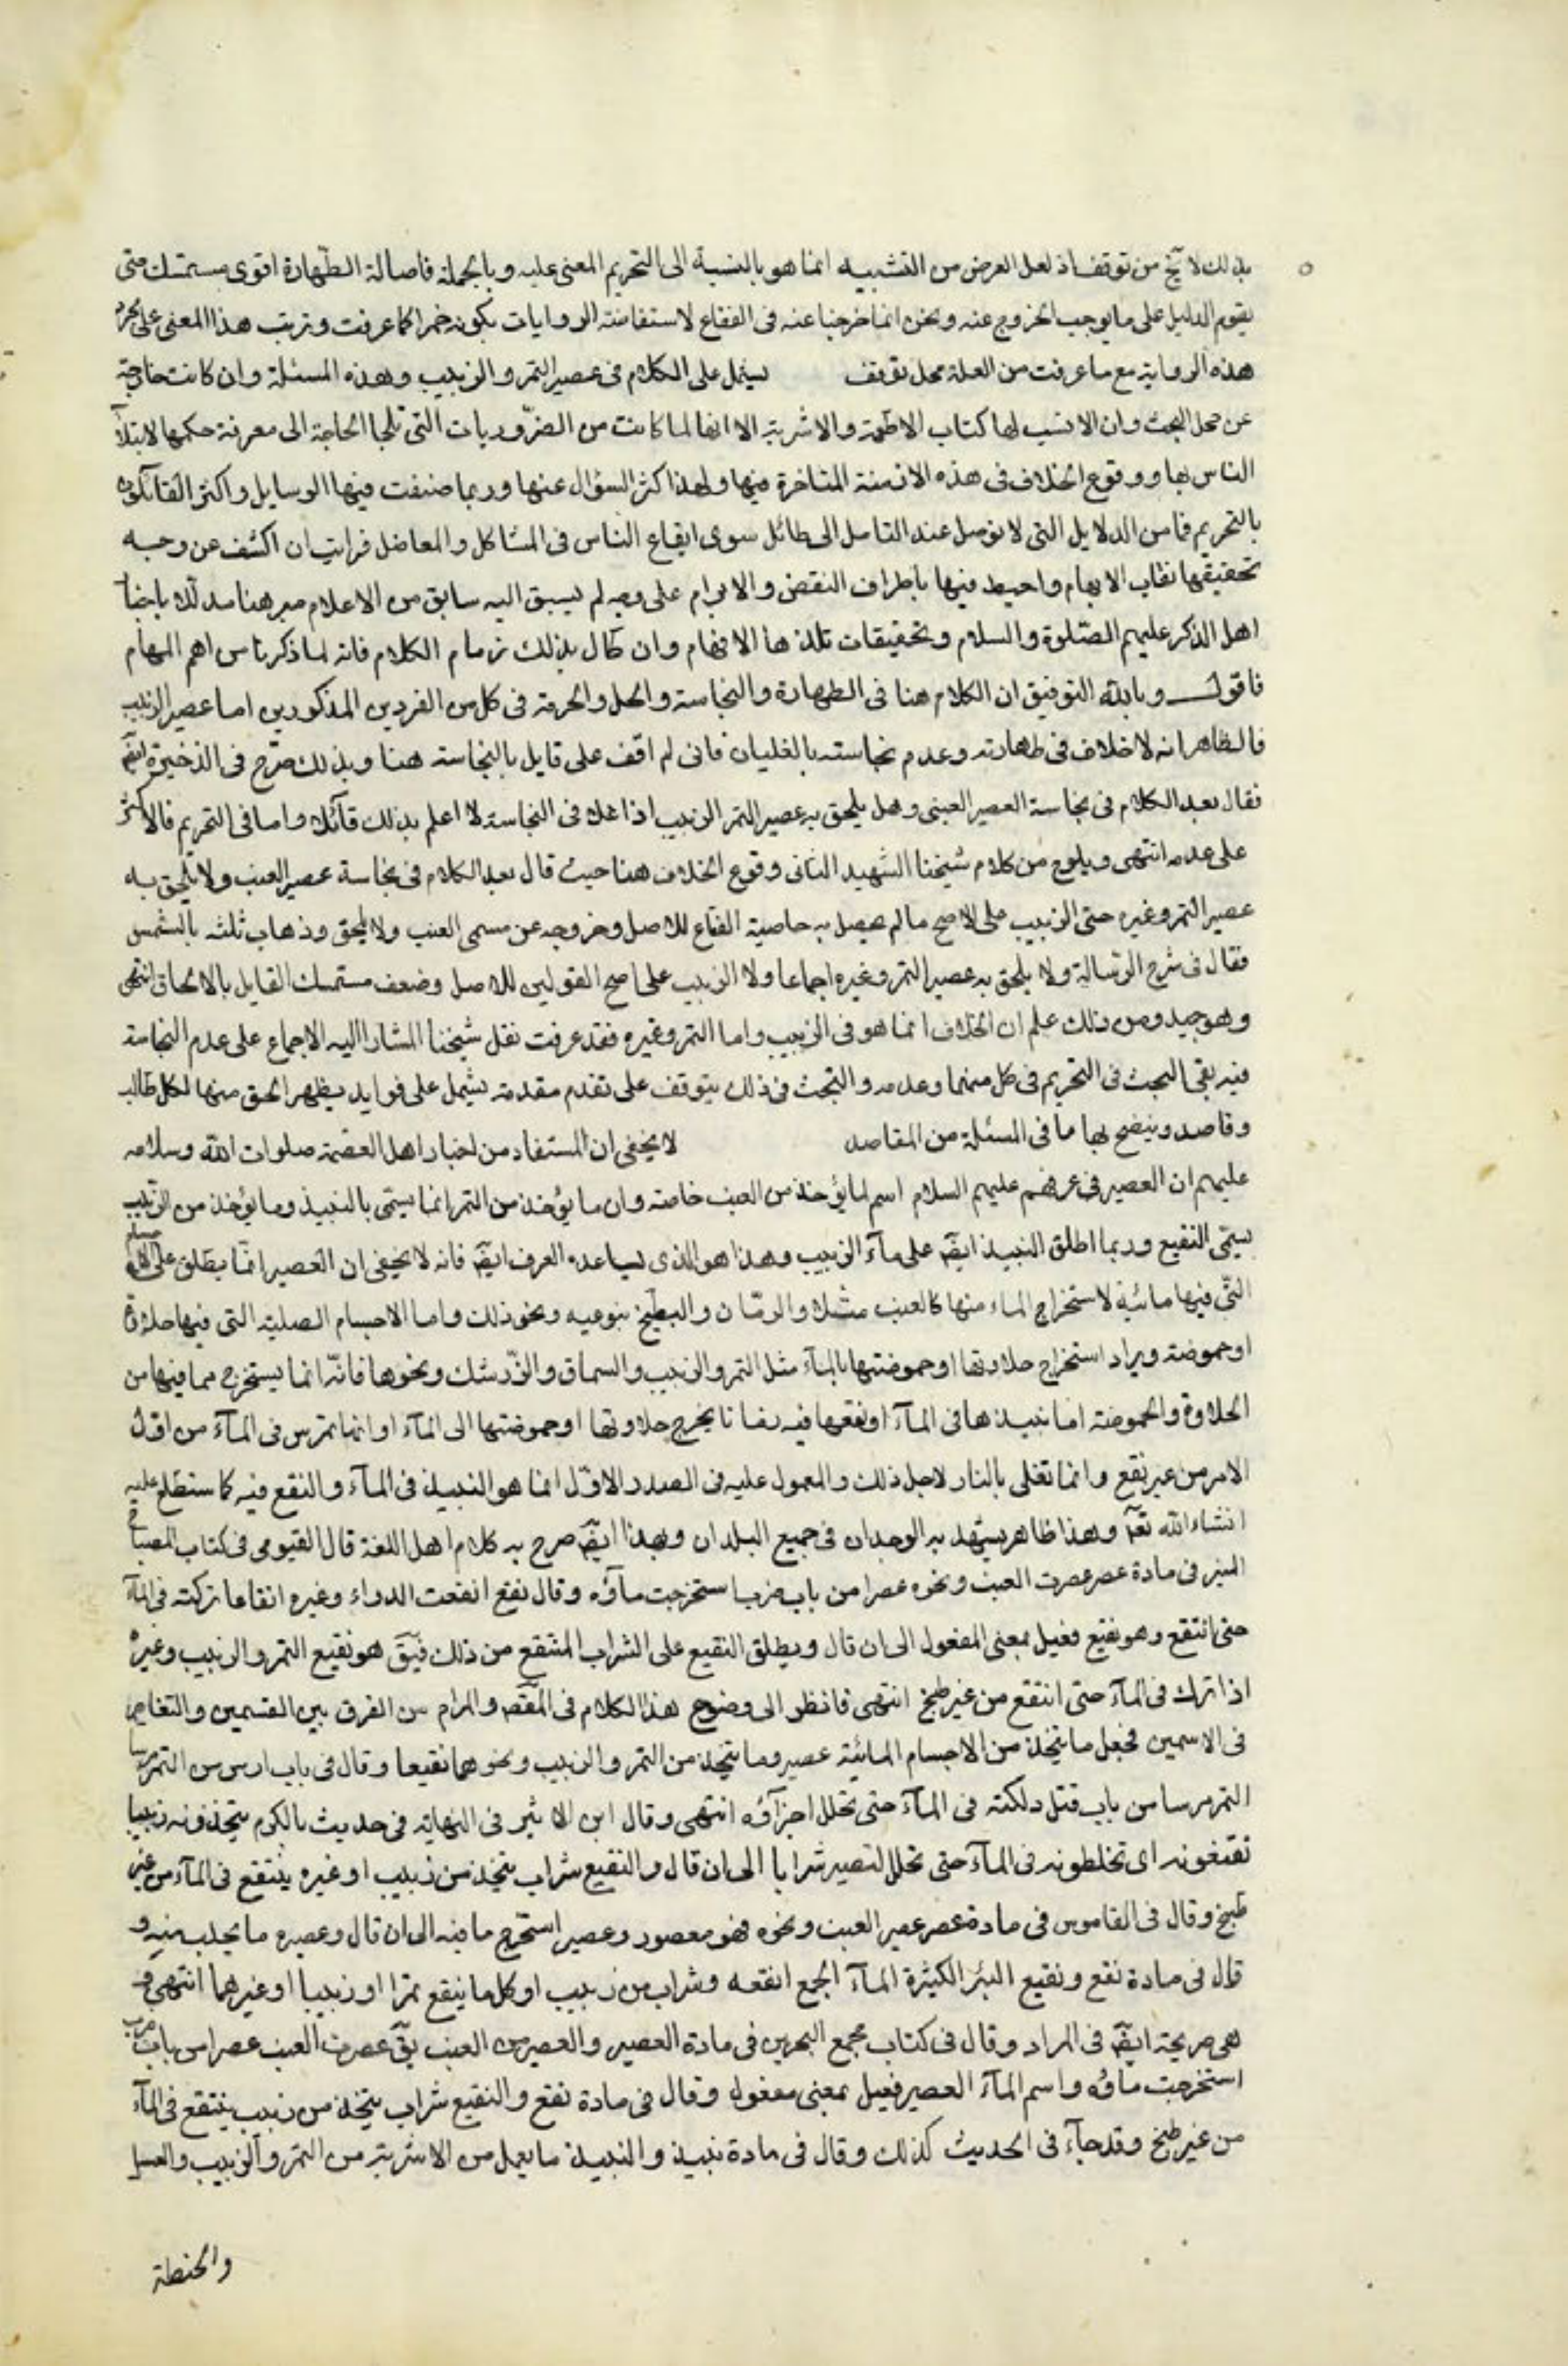 بذلك لا يخ من توقف اذ لعل الغرض من التشبيه انما هو بالنسبة الى التحريم المعنى عليه وبالجملة فاصالة الطهارة اقوى مستمسك حتى
يقوم الدليل على ما يوجب الخروج عنه ونحن انما خرجنا عنه فى الفقاع لاستفاضة الروايات بكونه خمرا كما عرفت وترتب هذا المعنى على
هذه الرواية مع ما عرفت من العلة محل توقف يشتمل على الكلام فى عصير التمر والزبيب وهذه المسئلة وان كانت خارجة
عن محل البحث وان الانسب لها كتاب الاطعمة والاشربة الا انها لما كانت من الضروريات التى تلجا الحاجة الى معرفة حكمها لابتلآ
الناس بها ووقوع الخلاف فى هذه الازمنة المتاخرة فيها ولهذا كثر السؤال عنها وربما صنفت فيها الرسايل واكثر القآئلون
بالتحريم فيها من الدلايل التى لا توصل عند التامل الى طائل سوى ايقاع الناس فى المشاكل والمعاضل فرايت ان اكشف عن وجه
تحقيقها نقاب الابهام واحيط فيها باطراف النقض والابرام على وجه لم يسبق اليه سابق من الاعلام مبرهنا مدللا باخبار
اهل الذكر عليهم الصلوة والسلام وتحقيقات تلذ ها الافهام وان طال بذلك زمام الكلام فانه لما ذكرنا من اهم المهام
فاقول وبالله التوفيق ان الكلام هنا فى الطهارة والنجاسة والحل والحرمة فى كل من الفردين المذكورين اما عصير الزبيب
فالظاهر انه لا خلاف فى طهارته وعدم نجاسته بالغليان فانى لم اقف على قايل بالنجاسة هنا وبذلك صرح فى الذخيرة ايضً
فقال بعد الكلام فى نجاسة العصير العنبى وهل يلحق به عصير التمر الزبيب اذا غلا فى النجاسة لا اعلم بذلك قآئلا واما فى التحريم فالاكثر
على عدمه انتهى ويلوح من كلام شيخنا الشهيد الثانى وقوع الخلاف هنا حيث قال بعد الكلام فى نجاسة عصير العنب ولا يلحق به
عصير التمر وغيره حتى الزبيب على الاصح ما لم يحصل به خاصية الفقاع للاصل وخروجه عن مسمى العنب ولا يلحق وذهاب ثلثه بالشمس
فقال فى شرح الرسالة ولا يلحق به عصير التمر وغيره اجماعا ولا الزبيب على اصح القولين للاصل وضعف مستمسك القايل بالالحاق انتهى
وهو جيد ومن ذلك علم ان الخلاف انما هو فى الزبيب واما التمر وغيره فقد عرفت نقل شيخنا المشار اليه الاجماع على عدم النجاسة
فيه بقى البحث فى التحريم فى كل منهما وعدمه والبحث فى ذلك يتوقف على تقدم مقدمة يشمل على فوايد يظهر الحق منها لكل طالب
وقاصد ويتضح بها ما فى المسئلة من المقاصد لا يخفى ان المستفاد من اخبار اهل العصمة صلوات الله وسلامه
عليهم ان العصير فى عرفهم عليهم السلام اسم لما يؤخذ من العنب خاصة وان ما يؤخذ من التمر انما يسمى بالنبيذ وما يؤخذ من الزبيب
يسمى النقيع وربما اطلق النبيذ ايضً على مآء الزبيب وهذا هو الذى يساعده العرف ايضً فانه لا يخفى ان العصير انما يطلق على الاجسام
التى فيها مائية لاستخراج الماء منها كالعنب مثلا والرمان والبطيخ بنوعيه ونحو ذلك واما الاجسام الصلبة التى فيها حلاوة
او حموضة ويراد استخراج حلاوتها او حموضتها بالمآء مثل التمر والزبيب والسماق والزرشك ونحوها فانه انما يستخرج مما فيها من
الحلاوة والحموضة اما نبيذها فى المآء او نقعها فيه زمانا يخرج حلاوتها او حموضتها الى المآء او انها تمرس فى المآء من اول
الامر من غير نقع وانما تغلى بالنار لاجل ذلك والمعمول عليه فى الصدر الاول انما هو النبيذ فى المآء والنقع فيه كما ستطلع عليه
انشاء الله تعً وهذا ظاهر يشهد به الوجدان فى جميع البلدان وبهذا ايضً صرح به كلام اهل اللغة قال الفيومى فى كتاب المصباح
المنير فى مادة عصر عصرت العنب ونحوه عصرا من باب ضرب استخرجت مآؤه وقال نقع انقعت الدواء وغيره انقاعا تركته فى المآء
حتى انتقع وهو نقيع فعيل بمعنى المفعول الى ان قال ويطلق النقيع على الشراب المنتقع من ذلك فيقً هو نقيع التمر والزبيب وغيره
اذا ترك فى المآء حتى انتقع من غير طبخ انتهى فانظر الى وضوح هذا الكلام فى المقصً والمرام من الفرق بين القسمين والتغاير
فى الاسمين فجعل ما يتخذ من الاجسام المائية عصير وما يتخذ من التمر والزبيب ونحوهما نقيعا وقال فى باب
التمر مرسا من باب قتل دلكته فى المآء حتى تحلل اجزآؤه انتهى وقال ابن الاثير فى النهاية فى حديث بالكرم يتخذونه زبيبا
تنقعونه اى تخلطونه فى المآء حتى تحلل لتصير شرابا الى ان قال والنقيع شراب يتخذ من زبيب او غيره ينتقع فى المآء من غير
طبخ وقال فى القاموس فى مادة عصر عصير العنب ونحوه فهو معصور وعصير استخرج ما فيه الى ان قال وعصيره ما يحلب منه و
قال فى مادة نقع ونقيع البئر الكثيرة المآء الجمع انقعه وشراب من زبيب او كل ما ينقع تمرا او زبيبا او غيرهما انتهى
هى صريحة ايضً فى المراد وقال فى كتاب مجمع البحرين فى مادة العصير والعصير من العنب يقً عصرت العنب عصرا من باب ضرب
استخرجت مآؤه واسم المآء العصير فعيل بمعنى مفعول وقال فى مادة نقع والنقيع شراب يتخذ من زبيب ينتقع فى المآء
من غير طبخ وقد جآء فى الحديث كذلك وقال فى مادة نبيذ والنبيذ ما يعمل من الاشربة من التمر والزبيب والعسل
والحنطة